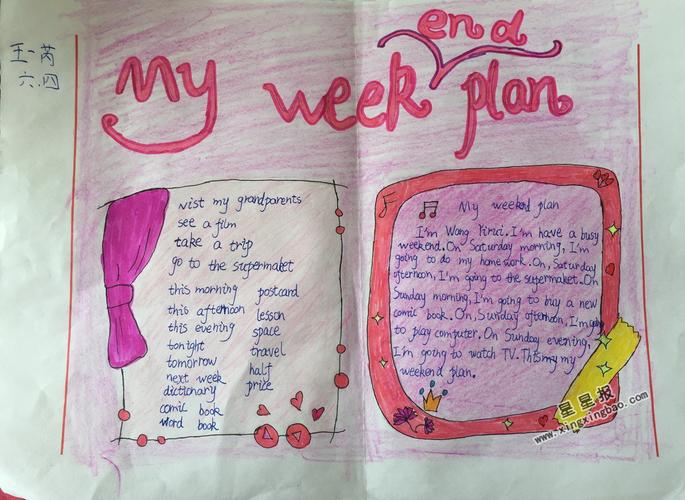 王一芮
六.四
My week end plan
vist my grandparents
see a film
take a trip
go to the supermaket
this morning postcard
this afternoon lesson
this evening space
tonight travel
tomorrow half
next week price
dictionary
comic book
word book
My weekend plan
I'm Wang Yirui. I'm have a busy
weekend. On Saturday morning, I'm
going to do my homework. On, Saturday
afternoon, I'm going to the supermaket. On
Sunday morning, I'm going to buy a new
comic book. On, Sunday afternoon, I'm going
to play computer. On Sunday evening,
I'm going to watch TV. This my my
weekend plan.
星星报
www.xingxingbao.com